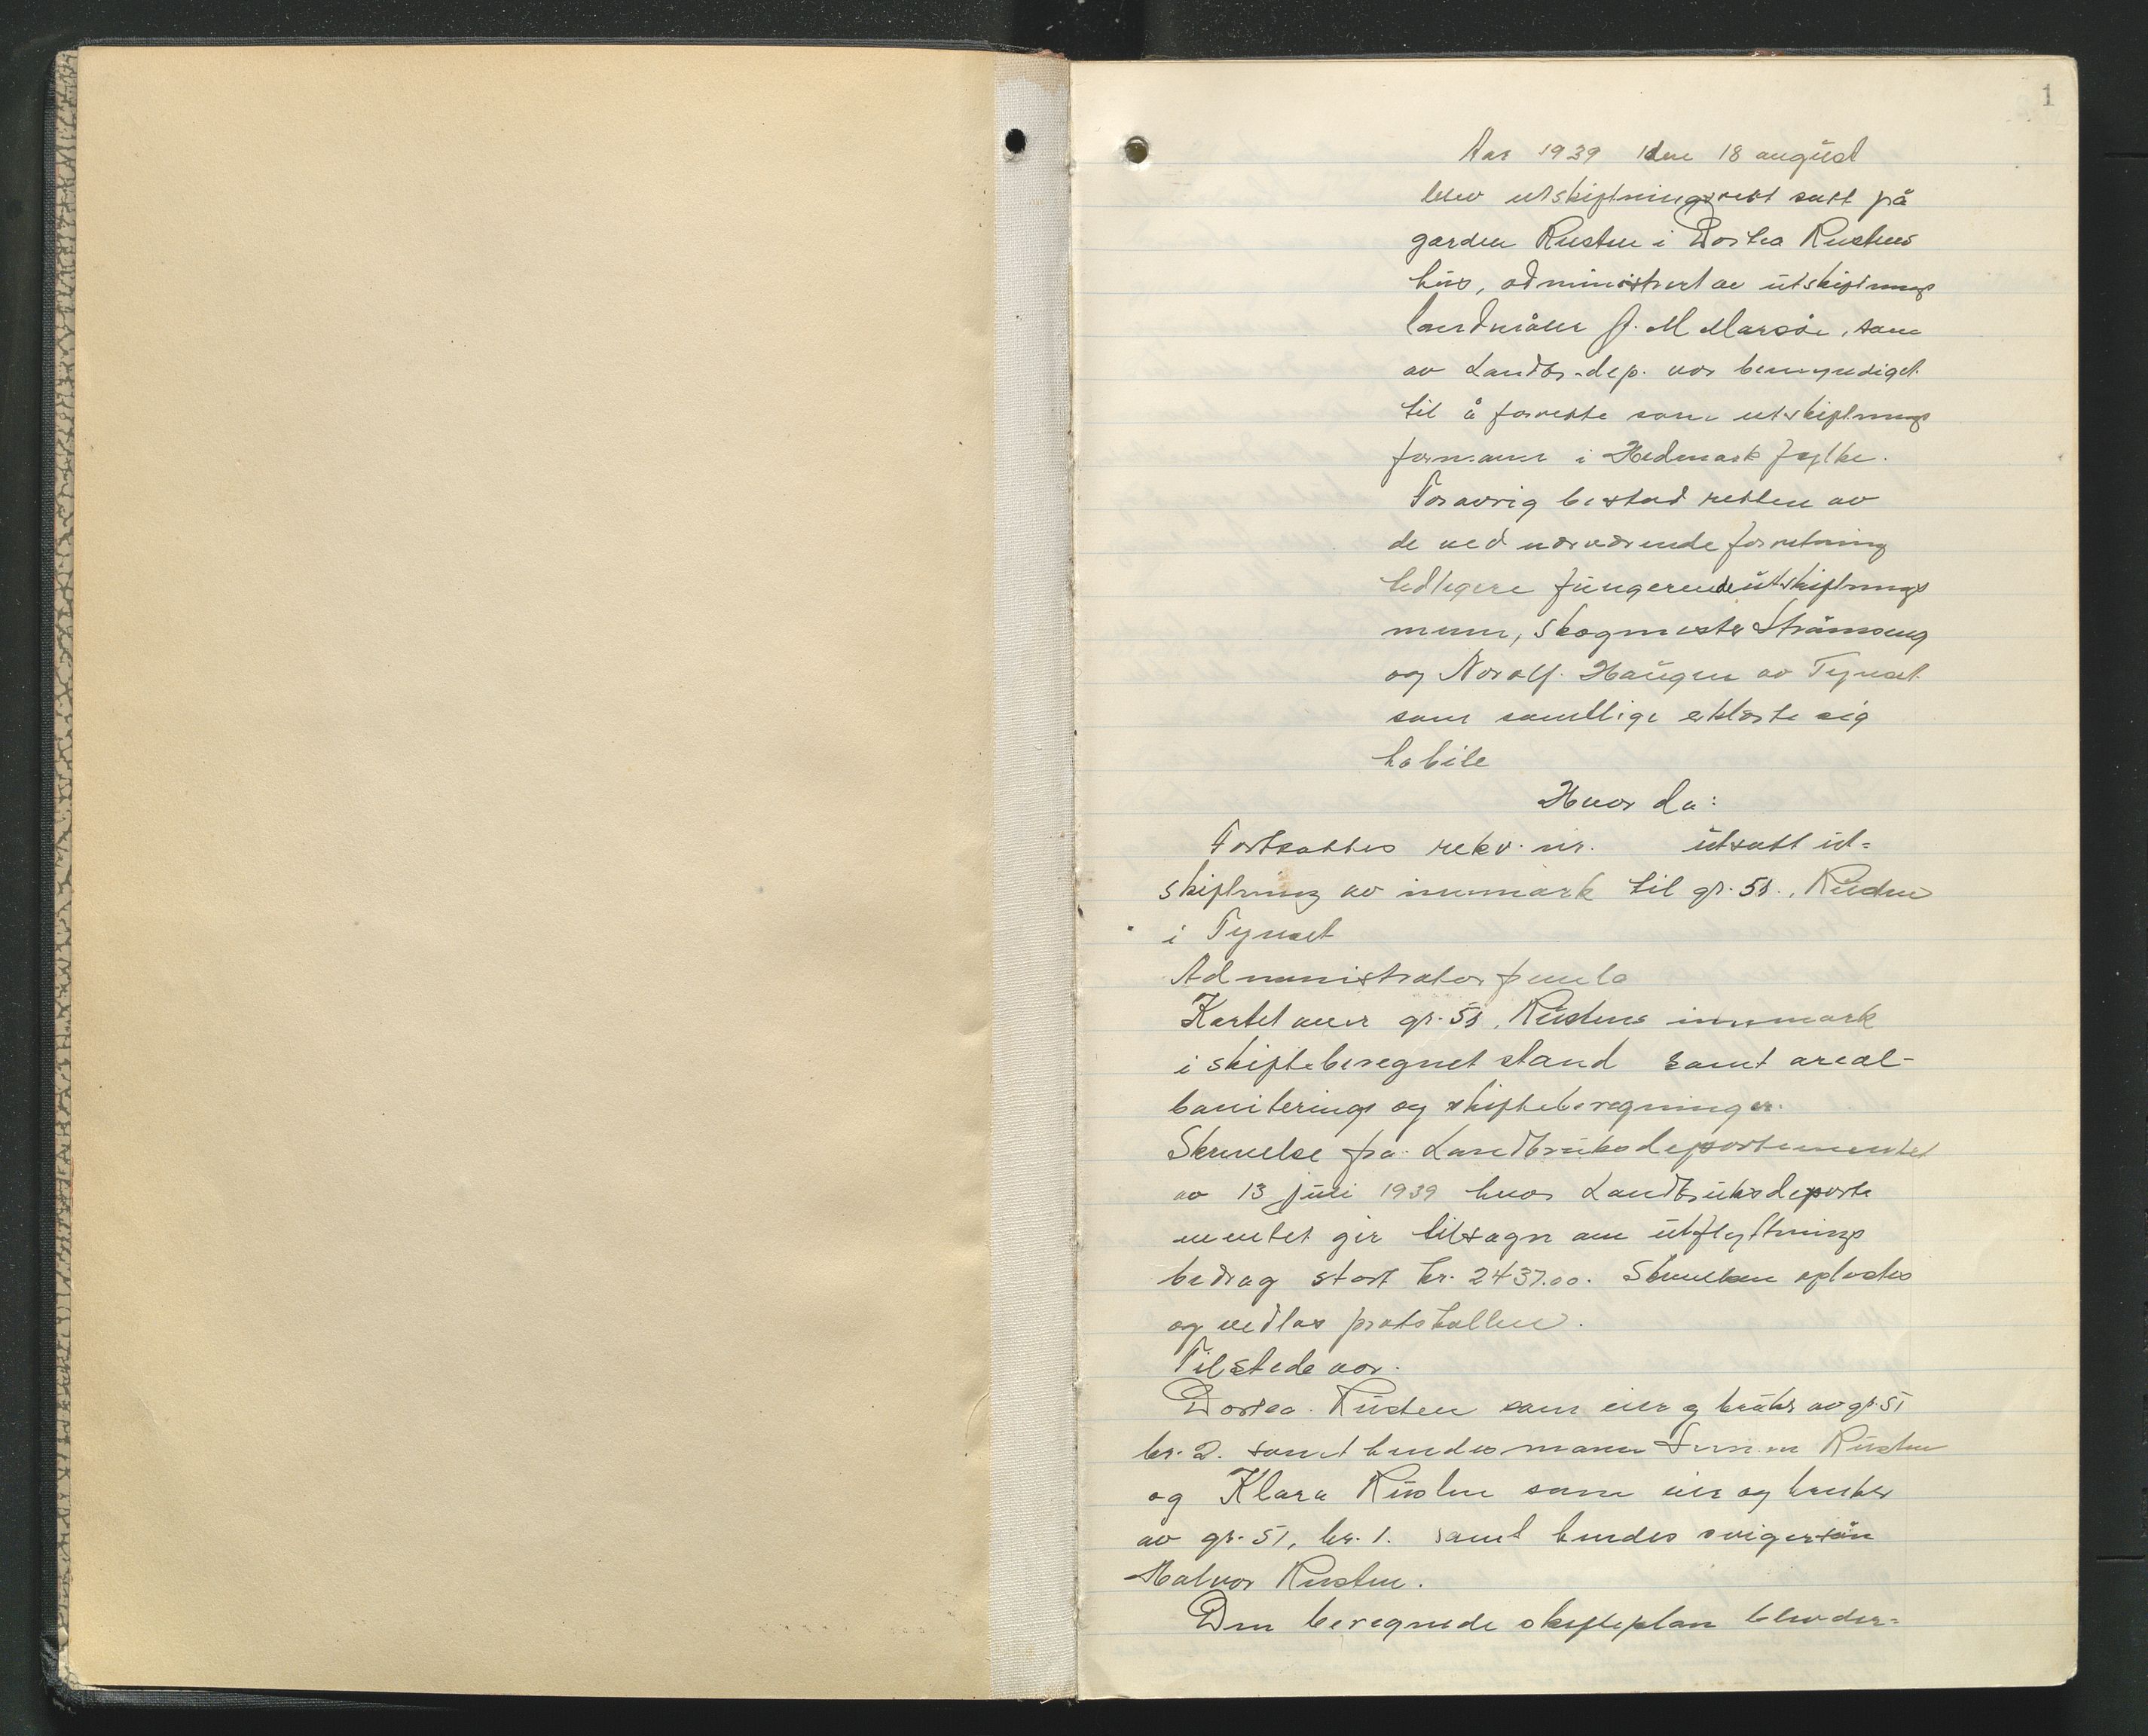 1
Aar 1939 den 18 august
blev utskiftningsrett satt på
garden Rusten i Dortea Rustens
hus, administrert av utskiftnings
landmåler J. M Marsøe, som
av Landbr.dep. var bemyndiget
til å forrette som utskiftnings
formann i Hedmark fylke.
Forøvrig bestod retten av
de ved nærværende forretning
tidligere fungerende utskiftnings
menn, skogmester Strømseng
og Norolf Haugen av Tynset
som samtlige erklærte sig
habile
Hvor da:
Fortsattes rekv. nr. utsatt ut=
skiftning av innmark til gr. 51., Rusten
i Tynset
Administrator fremla
Kartet over gr. 51, Rustens innmark
i skifteberegnet stand samt areal-
boniterings og skifteberegninger.
Skrivelse fra Landbruksdepartementet
av 13 juli 1939 hvor Landbruksdeparte
mentet gir tilsagn om utflytnings
bidrag stort kr. 2437.00. Skrivelsen oplestes
og vedlas protokollen.
Tilstede var.
Dortea Rusten som eier og bruker av gr. 51
br. 2. samt hendes mann Rusten
og Klara Rusten som eier og bruker
av gr. 51, br. 1. samt hendes svigersøn
Halvor Rusten.
Den beregnede skifteplan blev der=